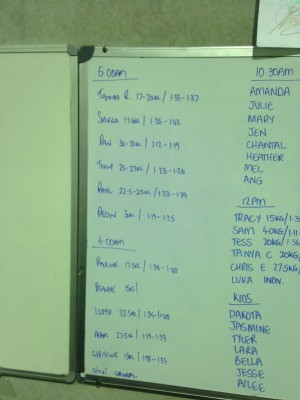 5:00AM
TAMMY R. 17-20KG / 1:33 - 1:37
17.5KG / 1:38 - 1:42
30-35KG / 1:12 - 1:19
TONY 25-27KG / 1:23 - 1:26
PAUL 22.5-25KG / 1:23 - 1:29
30KG / 1:19 - 1:25
6:00AM
PAULINE 17.5KG / 1:34 - 1:40
15KG /
22.5KG / 1:35 - 1:40
ADAM 27.5KG / 1:29 - 1:33
CHRISTINE 15KG / 1:28 - 1:33
10:30AM
AMANDA
JULIE
MARY
JEN
CHANTAL
HEATHER
MEL
ANG
12PM
TRACY 15KG / 1:3
SAM 40KG / 1:11
TESS 20KG / 1:36
TANYA C 20KG
CHRIS E 27.5KG /
LUKA INDV.
KIDS
DAKOTA
JASMINE
TYLER
LARA
BELLA
JESSE
AILEE